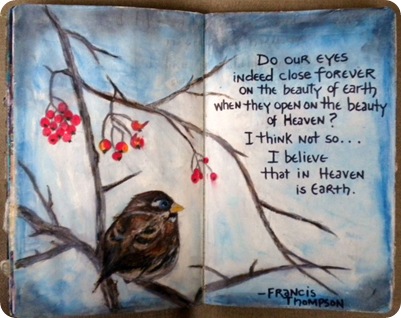 Do our eyes
indeed close forever
on the beauty of earth
when they open on the beauty
of Heaven?
I think not so...
I believe
that in Heaven
is Earth.
-Francis
Thompson